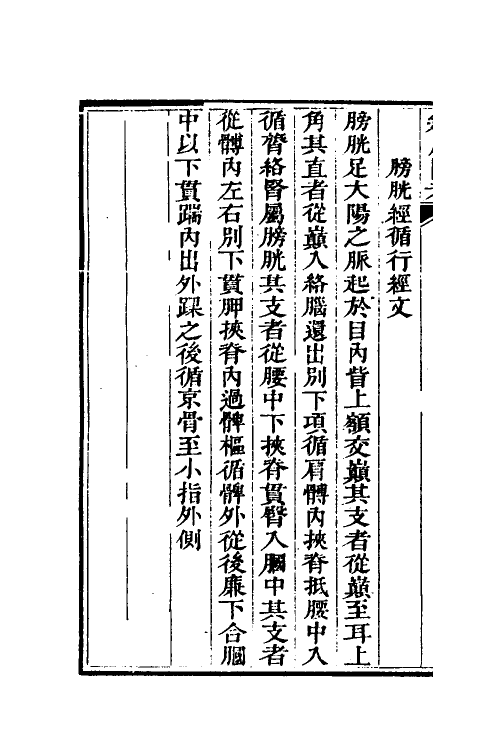 膀胱經循行經文
膀胱足大陽之脈起於目內眥上額交巔其支者從巔至耳上
角其直者從巔入絡腦還出別下項循肩髆內挾脊抵腰中入
循膂絡腎屬膀胱其支者從腰中下挾脊貫臀入膕中其支者
從髆內左右別下貫胛挾脊內過髀樞循髀外從後廉下合膕
中以下貫踹內出外踝之後循京骨至小指外側